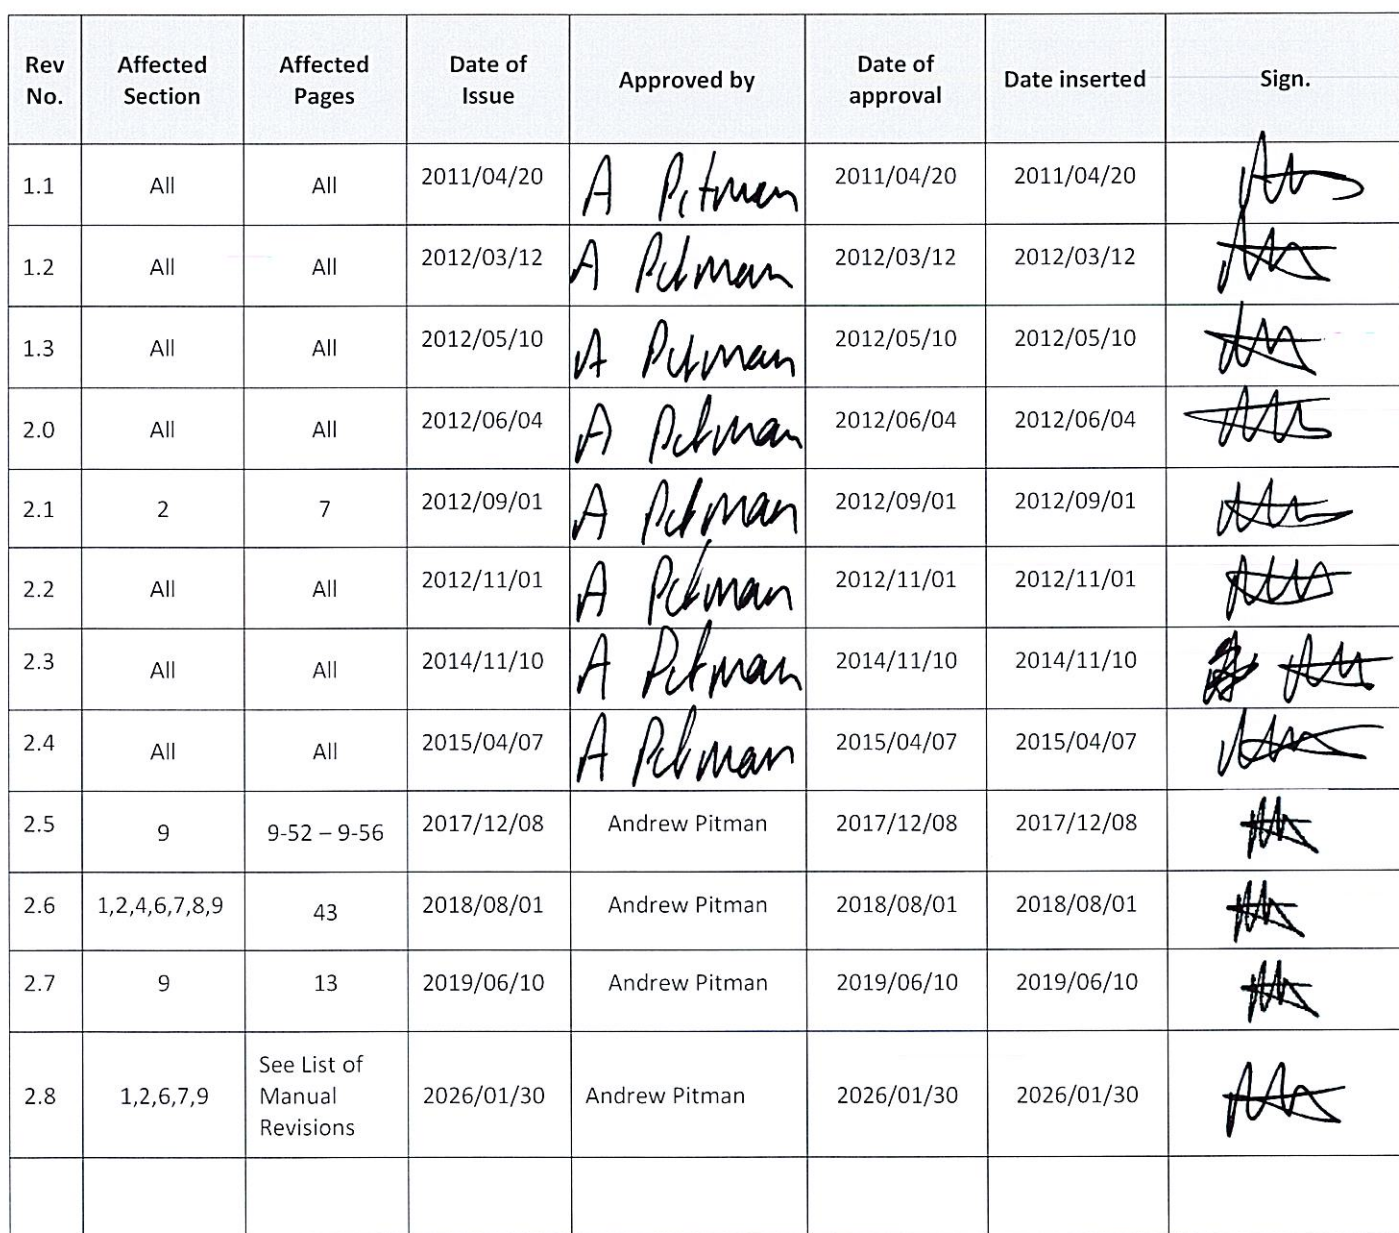 Rev No. Affected Section Affected Pages Date of Issue Approved by Date of approval Date inserted Sign.
1.1 All All 2011/04/20 A Pitman 2011/04/20 2011/04/20
1.2 All All 2012/03/12 A Pitman 2012/03/12 2012/03/12
1.3 All All 2012/05/10 A Pitman 2012/05/10 2012/05/10
2.0 All All 2012/06/04 A Pitman 2012/06/04 2012/06/04
2.1 2 7 2012/09/01 A Pitman 2012/09/01 2012/09/01
2.2 All All 2012/11/01 A Pitman 2012/11/01 2012/11/01
2.3 All All 2014/11/10 A Pitman 2014/11/10 2014/11/10
2.4 All All 2015/04/07 A Pitman 2015/04/07 2015/04/07
2.5 9 9-52 – 9-56 2017/12/08 Andrew Pitman 2017/12/08 2017/12/08
2.6 1,2,4,6,7,8,9 43 2018/08/01 Andrew Pitman 2018/08/01 2018/08/01
2.7 9 13 2019/06/10 Andrew Pitman 2019/06/10 2019/06/10
2.8 1,2,6,7,9 See List of Manual Revisions 2026/01/30 Andrew Pitman 2026/01/30 2026/01/30